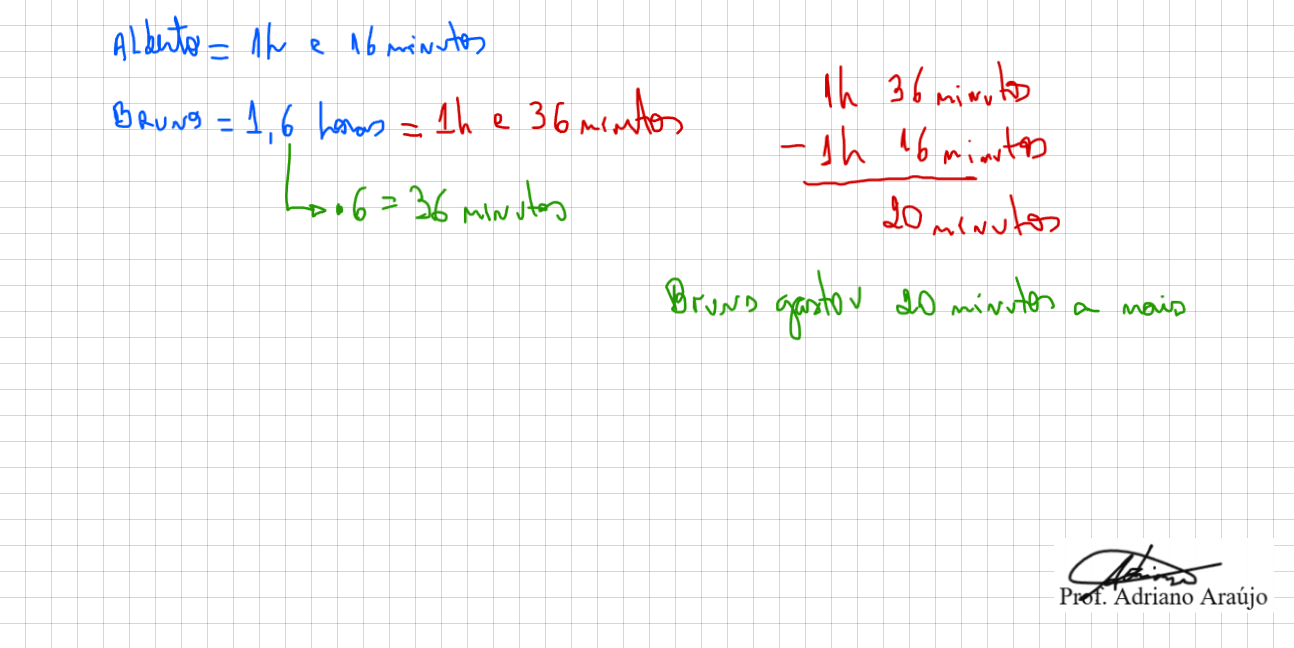 Alberto = 1h e 16 minutos
Bruno = 1,6 horas = 1h e 36 minutos
.6 = 36 minutos
1h 36 minutos
- 1h 16 minutos
20 minutos
Bruno gastou 20 minutos a mais
Prof. Adriano Araújo